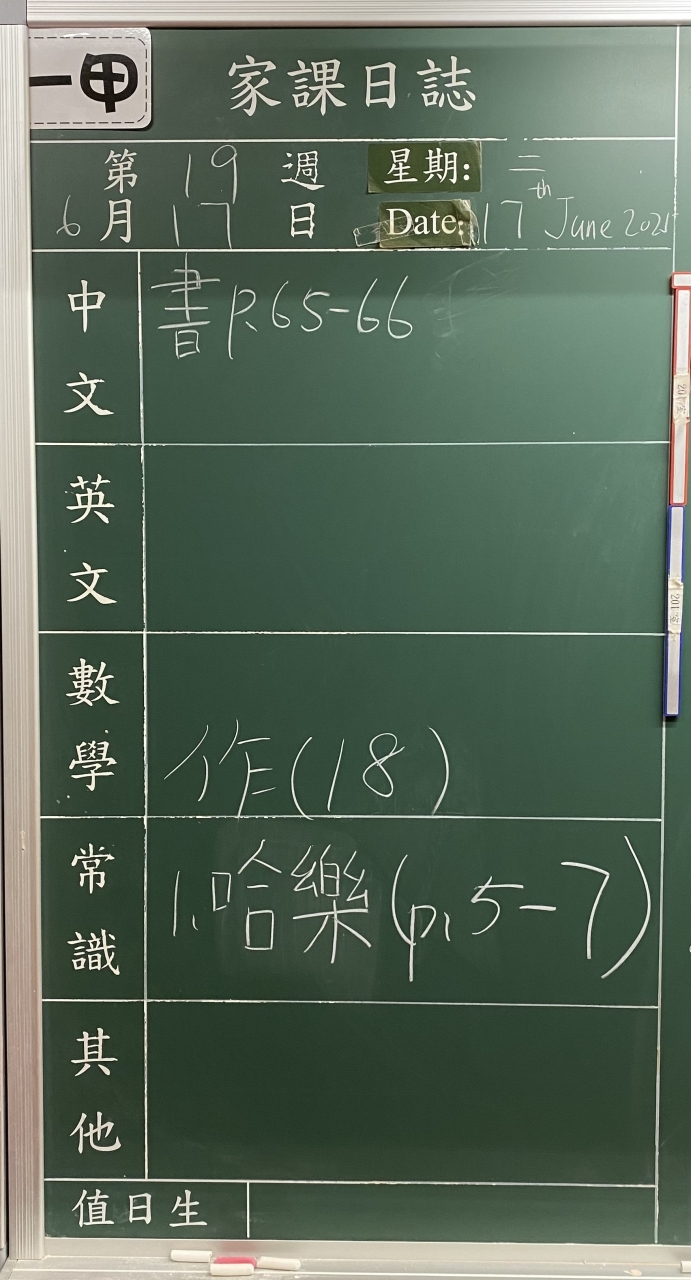 一甲
家課日誌
第 19 週 星期: 二
6 月 17 日 Date: 17th June 2025
中文 書 P.65-66
英文
數學 作(18)
常識 1.哈樂(p.5-7)
其他
值日生